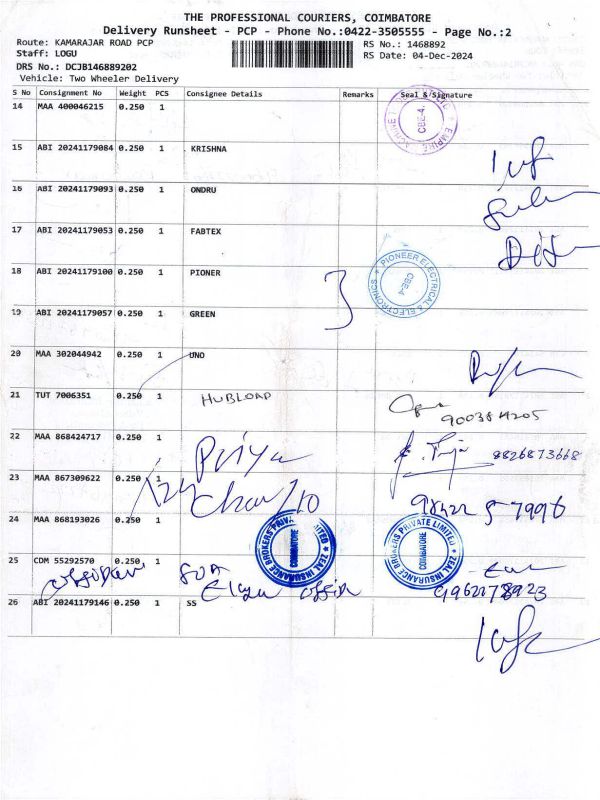 THE PROFESSIONAL COURIERS, COIMBATORE
Delivery Runsheet - PCP - Phone No.:0422-3505555 - Page No.:2
Route: KAMARAJAR ROAD PCP
RS No.: 1468892
Staff: LOGU
RS Date: 04-Dec-2024
DRS No.: DCJB146889202
Vehicle: Two Wheeler Delivery
S No Consignment No Weight PCS Consignee Details Remarks Seal & Signature
14 MAA 400046215 0.250 1
EMPIRE CBE-4.
15 ABI 20241179084 0.250 1 KRISHNA
16 ABI 20241179093 0.250 1 ONDRU
17 ABI 20241179053 0.250 1 FABTEX
18 ABI 20241179100 0.250 1 PIONER
PIONEER ELECTRICAL & ELECTRONICS CBE-4
19 ABI 20241179057 0.250 1 GREEN
20 MAA 302044942 0.250 1 UNO
21 TUT 7006351 0.250 1 HUBLOAD
22 MAA 868424717 0.250 1 Priya 9826873668
23 MAA 867309622 0.250 1
24 MAA 868193026 0.250 1
ZEAL INSURANCE BROKERS PRIVATE LIMITED COIMBATORE
ZEAL INSURANCE BROKERS PRIVATE LIMITED COIMBATORE
25 CDM 55292570 0.250 1
26 ABI 20241179146 0.250 1 SS